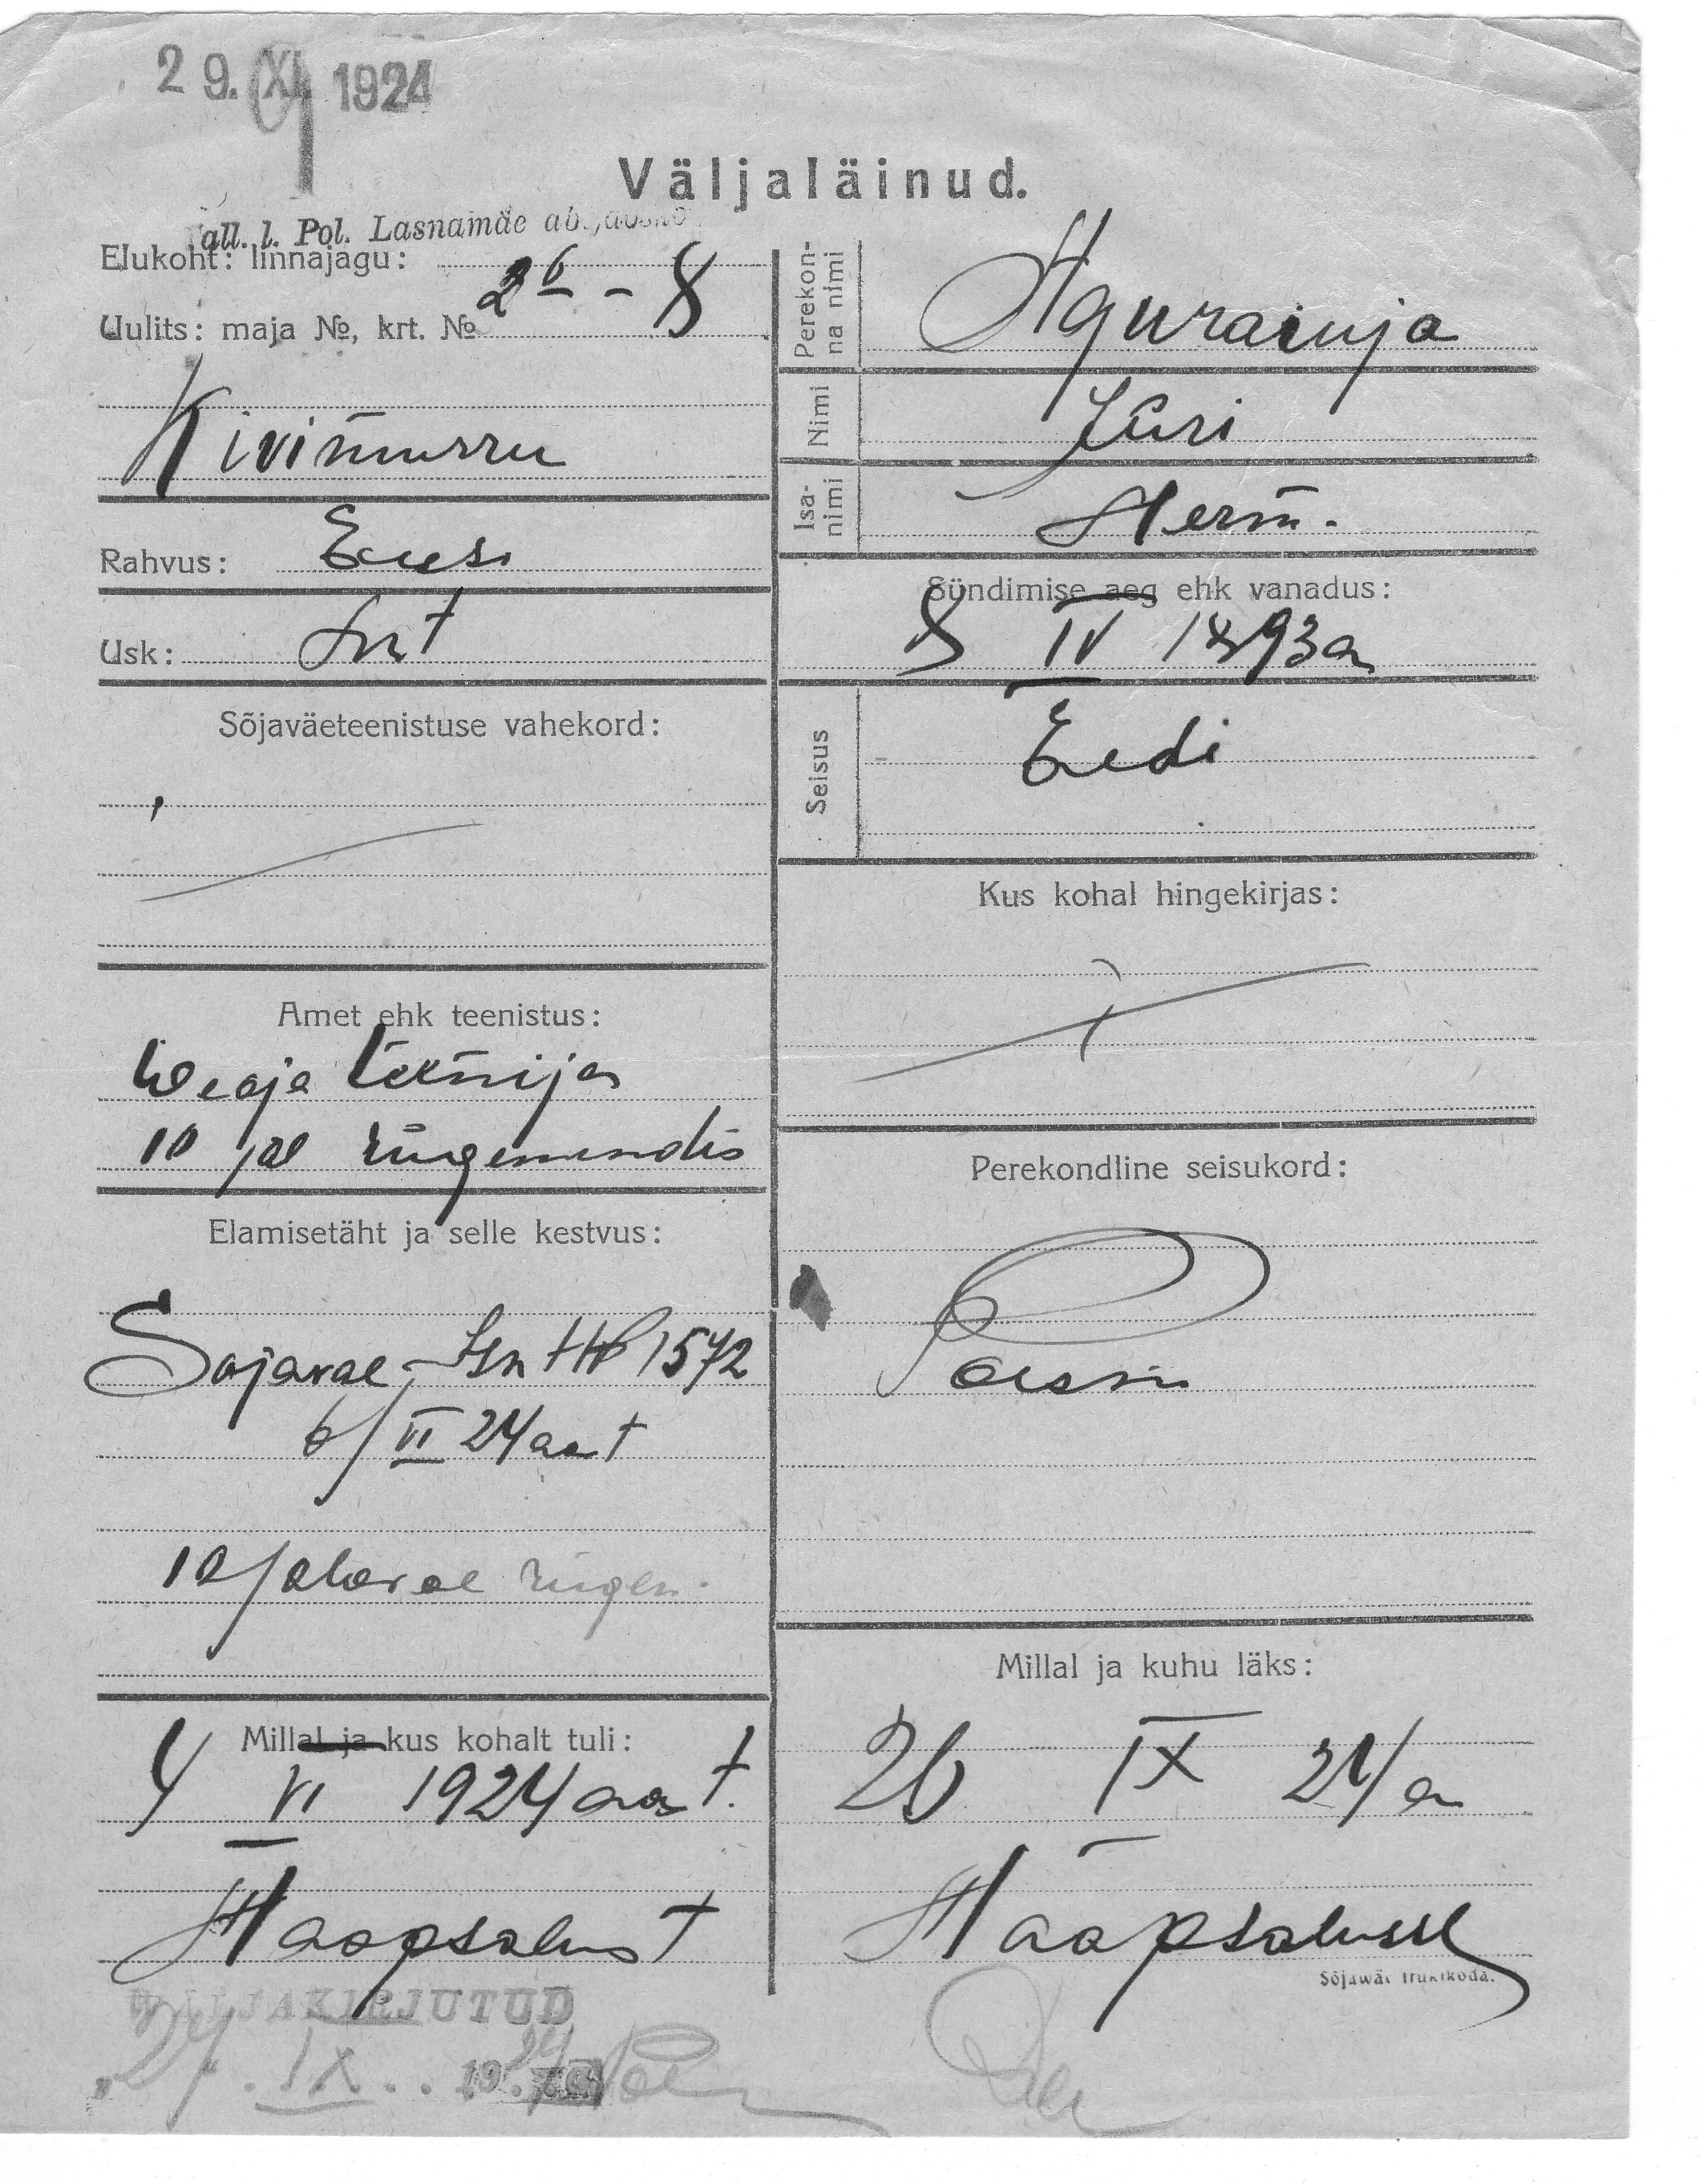 29. XI 1924
Väljaläinud.
Tall. l. Pol. Lasnamäe abijaosko
Elukoht: linnajagu:
Uulits: maja №, krt. № 26 - 8
Kivimurru
Rahvus: Eesi
Usk: Lut
Sõjaväeteenistuse vahekord:
Amet ehk teenistus:
Weoja
10 jal rügemendis
Elamisetäht ja selle kestvus:
Sojavae 1572
6/VI 24 aat
10 jalavae rügem.
Millal ja kus kohalt tuli:
4 VI 1924 aat.
Haapsalust
WÄLJAKIRJUTUD
24. IX. 19
Perekonna nimi
Aguraiuja
Nimi
Jüri
Isanimi
Herm.
Sündimise aeg ehk vanadus:
8 IV 1893 a
Seisus
Eedi
Kus kohal hingekirjas:
Perekondline seisukord:
Poism
Millal ja kuhu läks:
26 IX 24/a
Haapsalusse
Sõjawäe trükikoda.